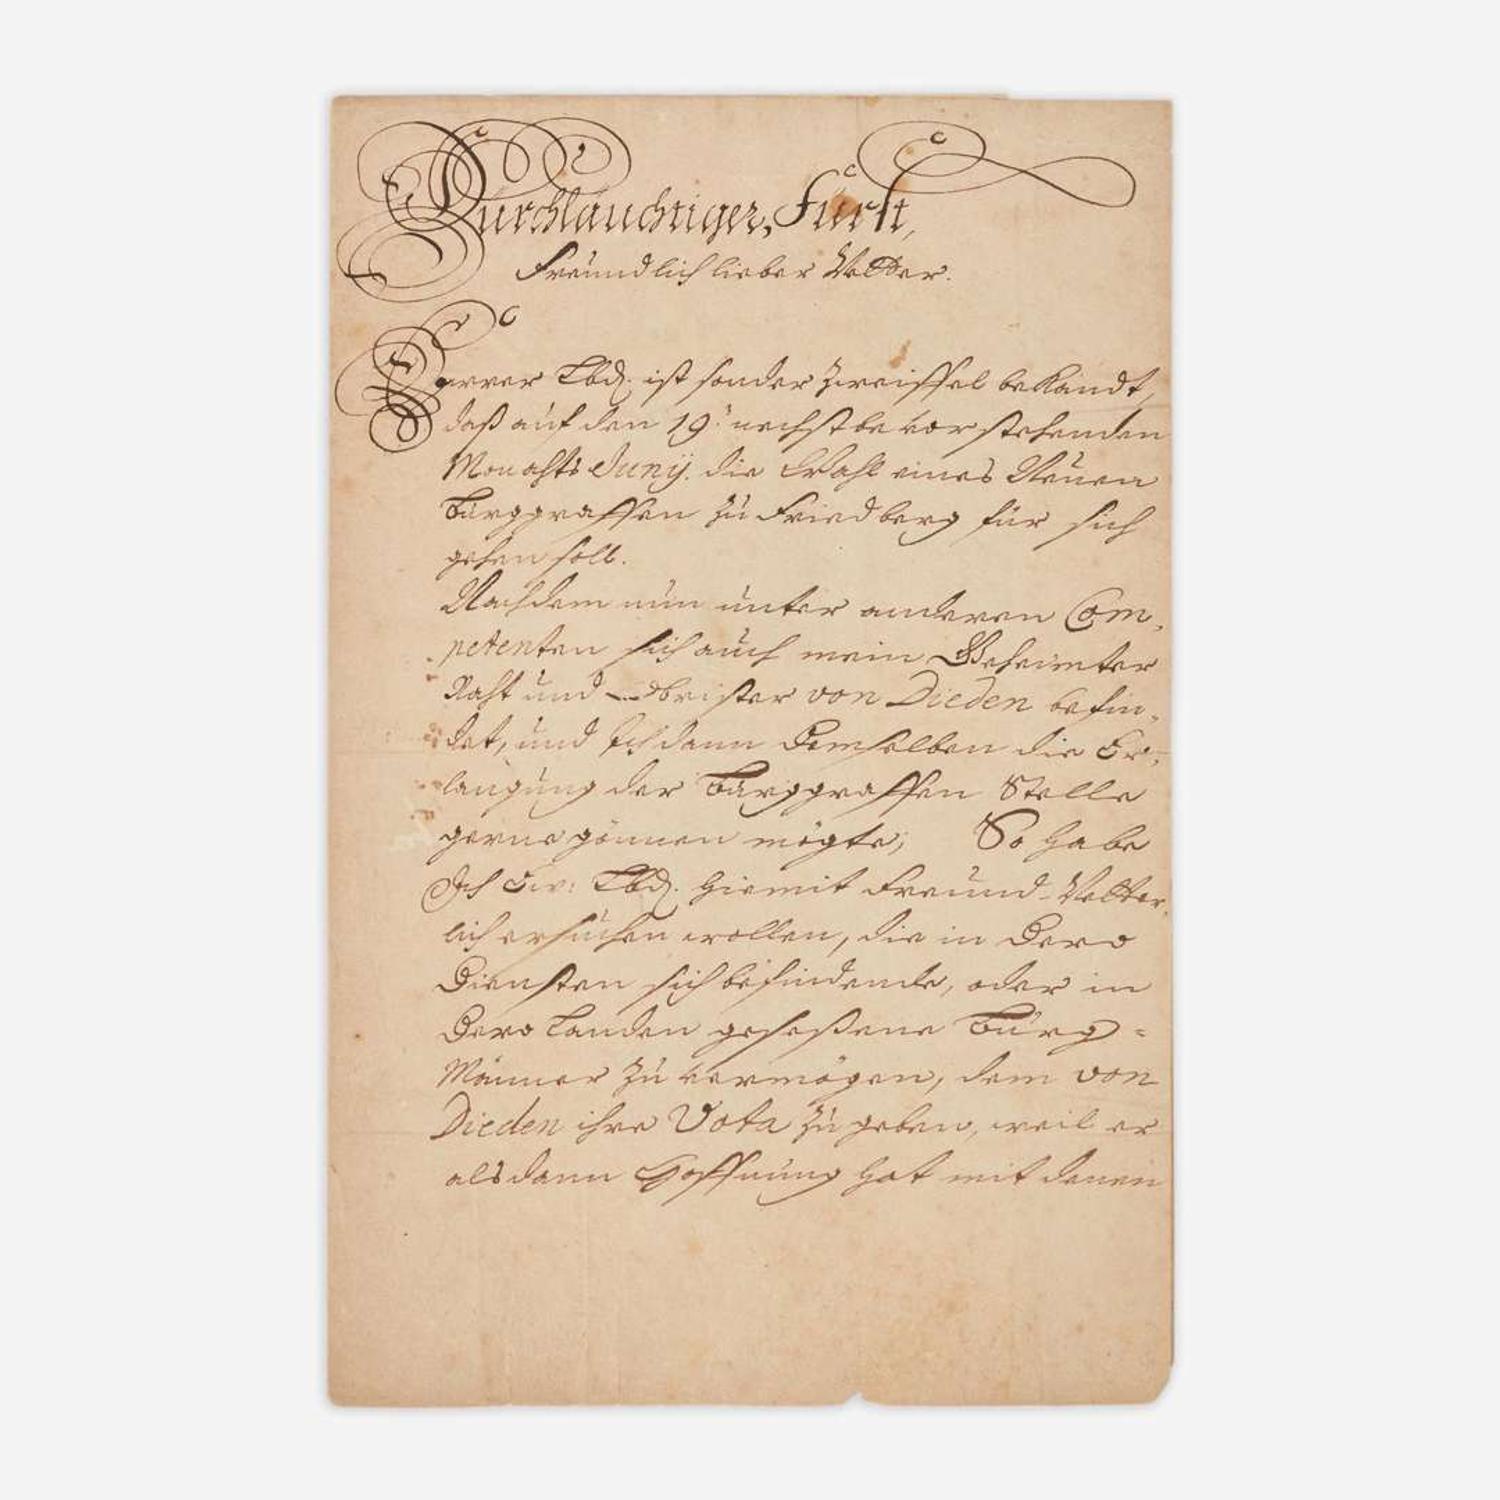 Durchläuchtiger, Fürst,
Freundlich lieber Vetter.
Eurer Lbd. ist sonder zweiffel bekandt,
daß auf den 19. nechstbevorstehenden
Monahts Junij. die Wahl eines Neuen
Burggraffen zu Friedberg für sich
gehen soll.
Nachdem nun unter anderen Com,
petenten sich auch mein Geheimter
Raht und Obrister von Dieden befin,
det, und Ich dann Demselben die Er,
langung der Burggraffen Stelle
gerne gönnen mögte; So habe
Ich Ew: Lbd. hiemit Freund-Vetter,
lich ersuchen wollen, die in Dero
Diensten sich befindende, oder in
Dero Landen geseßene Burg=
Männer zu vermögen, dem von
Dieden ihre Vota zu geben, weil er
alsdann Hoffnung hat mit denen